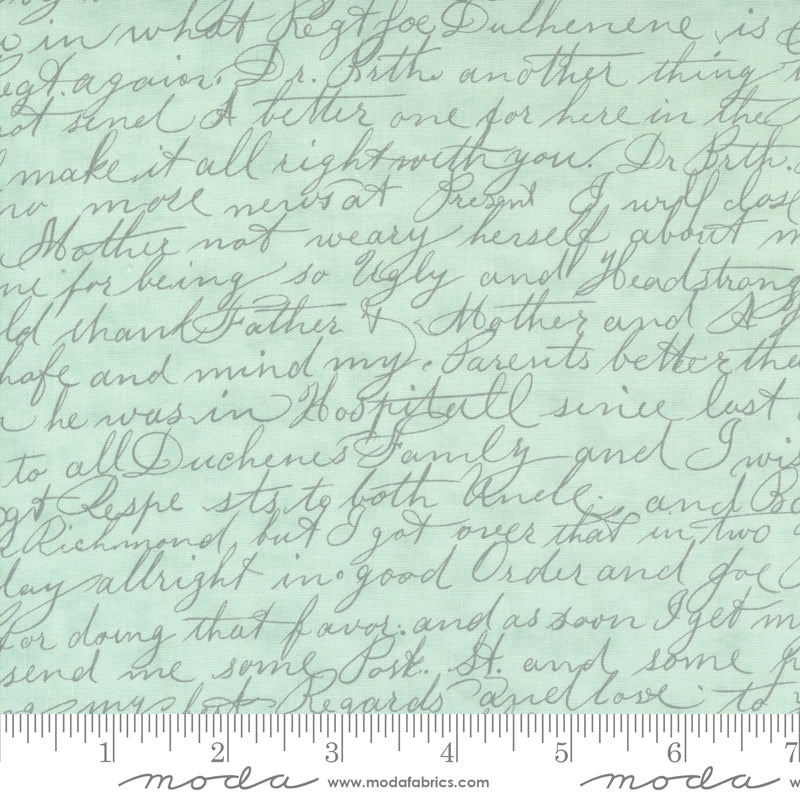 in what Regt Joe Duchenene is
egt. again. Dr. Brth. another thing
not send A better one for here in the
make it all right with you. Dr Brth.
no more news at Present I will close
Mother not weary herself about m
ne for being so Ugly and Headstrong
ld thank Father & Mother and A
hafe and mind my. Parents better tha
he was in Hospitall since last
to all Duchenes Family and I wis
gt Respe sts to both Uncle. and Bo
Richmond, but I got over that in two
day allright in good Order and Joe
for doing that favor. and as soon I get m
send me some Post. St. and some p
my Regards and love to
1 2 3 4 5 6 7
moda www.modafabrics.com moda w